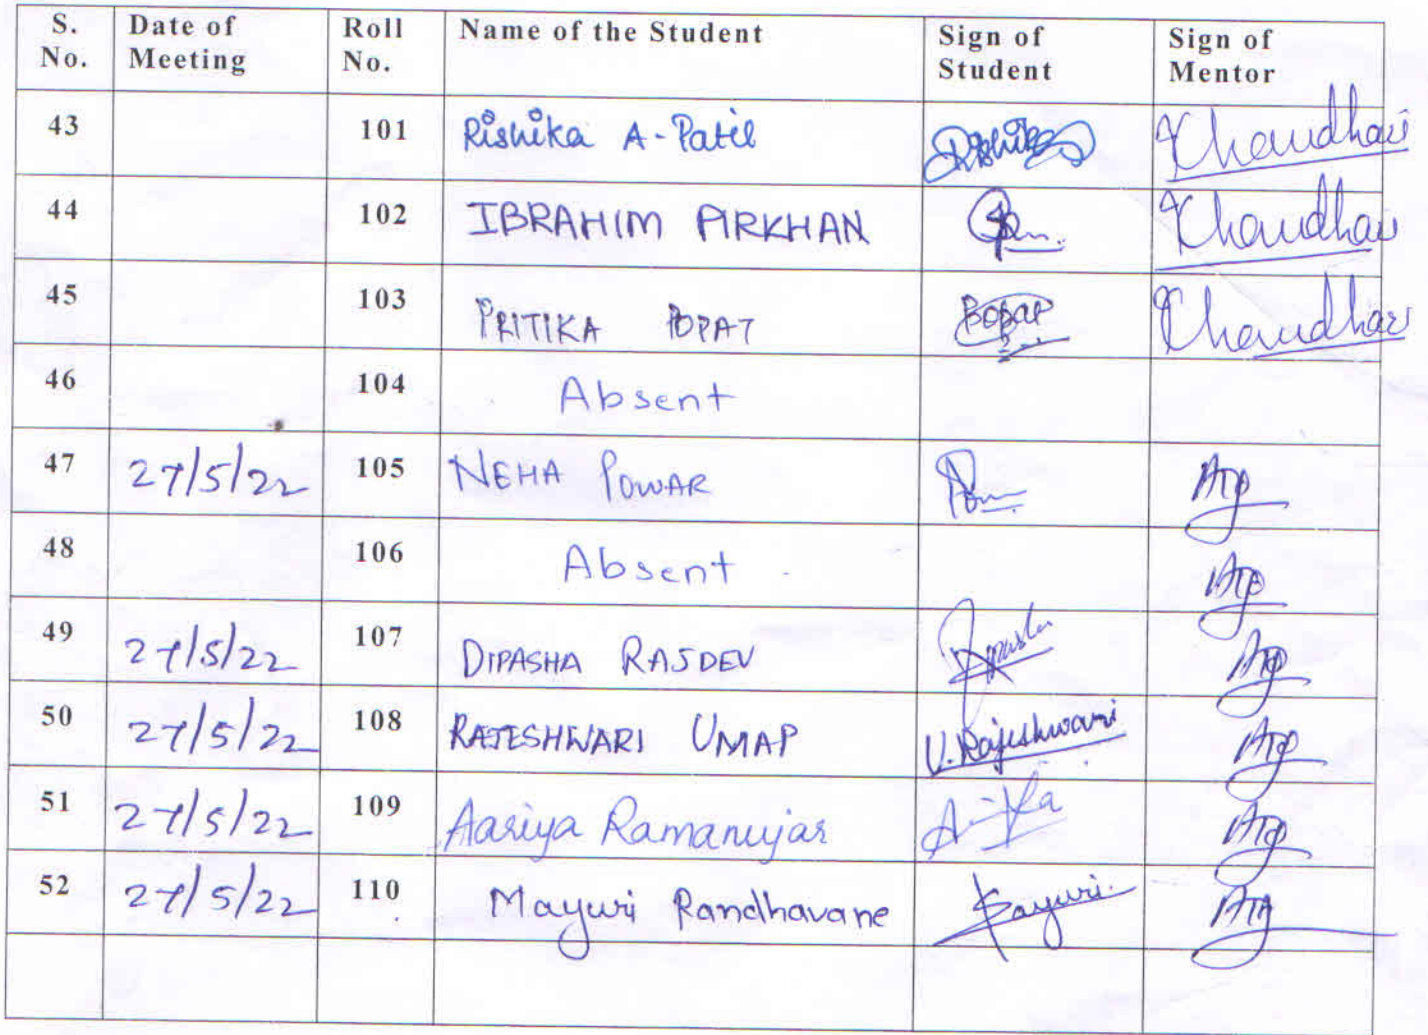 S. No. Date of Meeting Roll No. Name of the Student Sign of Student Sign of Mentor
43 101 Rishika A-Patil Chaudhari
44 102 IBRAHIM PIRKHAN Chaudhari
45 103 PRITIKA POPAT Popat Chaudhari
46 104 Absent
47 27/5/22 105 NEHA POWAR
48 106 Absent
49 27/5/22 107 DIPASHA RAJDEV Dipasha
50 27/5/22 108 RAJESHWARI UMAP U. Rajeshwari
51 27/5/22 109 Aariya Ramanujar
52 27/5/22 110 Mayuri Randhavane